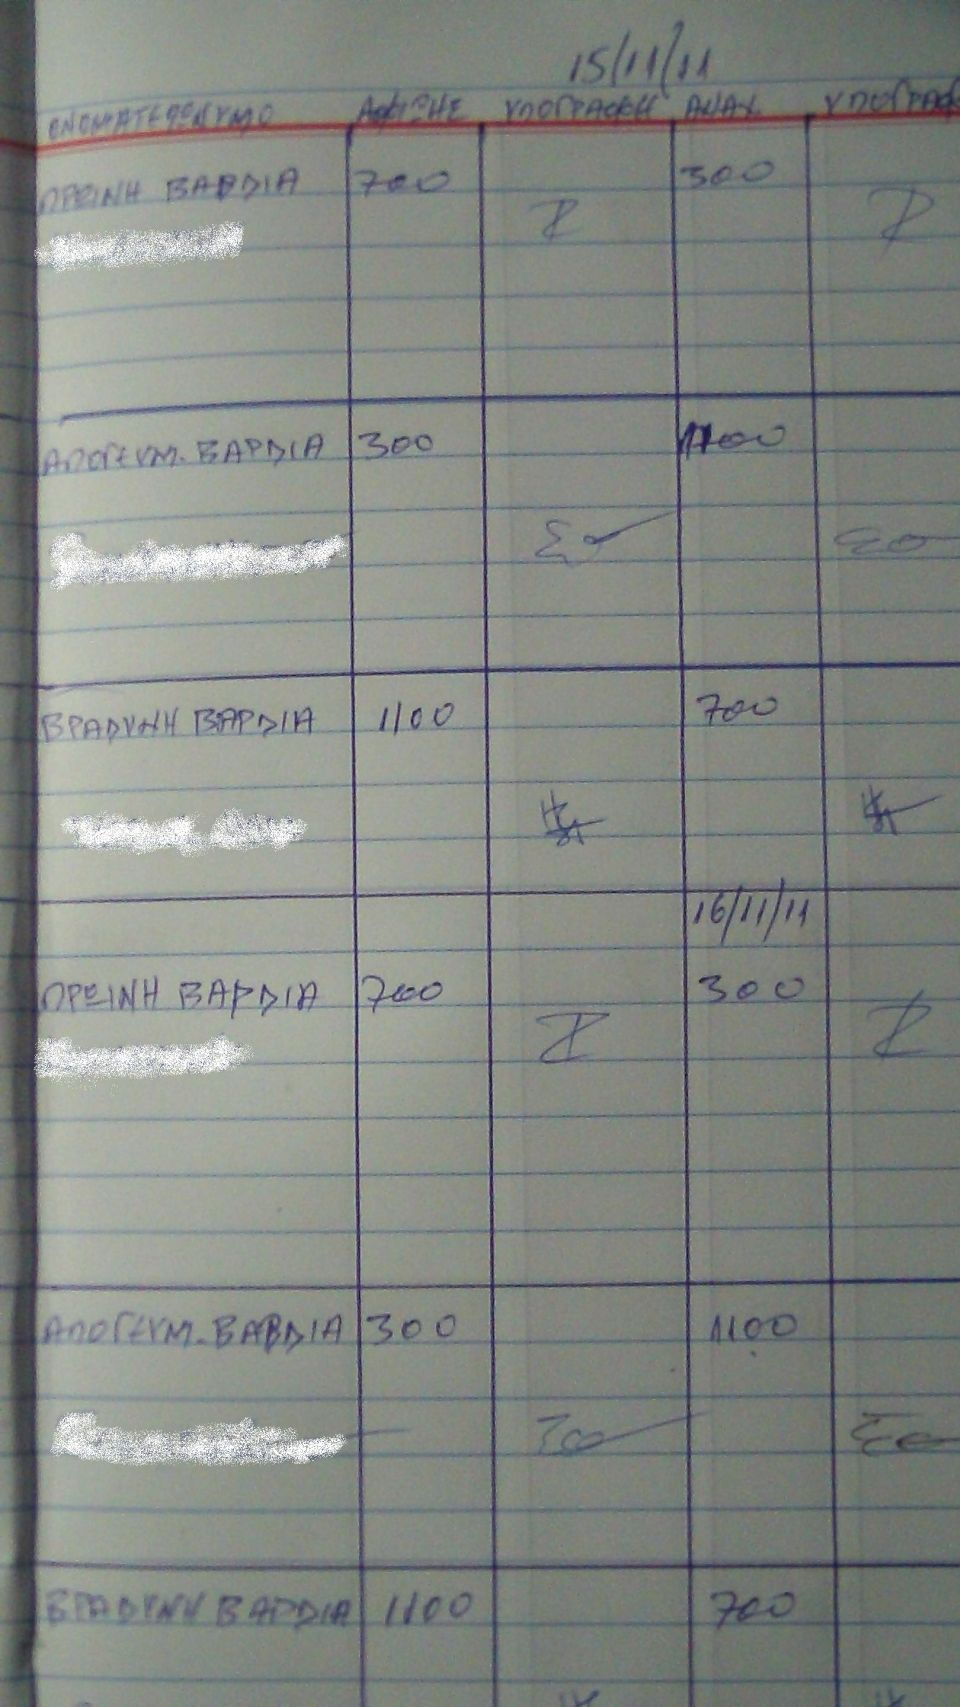 15/11/11
ΟΝΟΜΑΤΕΠΩΝΥΜΟ ΑΦΙΞΗΣ ΥΠΟΓΡΑΦΗ ΑΝΑΧ. ΥΠΟΓΡΑΦ
ΠΡΩΙΝΗ ΒΑΡΔΙΑ 700 300
ΑΠΟΓΕΥΜ. ΒΑΡΔΙΑ 300 1100
ΒΡΑΔΥΝΗ ΒΑΡΔΙΑ 1100 700
16/11/11
ΠΡΩΙΝΗ ΒΑΡΔΙΑ 700 300
ΑΠΟΓΕΥΜ. ΒΑΡΔΙΑ 300 1100
ΒΡΑΔΥΝΗ ΒΑΡΔΙΑ 1100 700